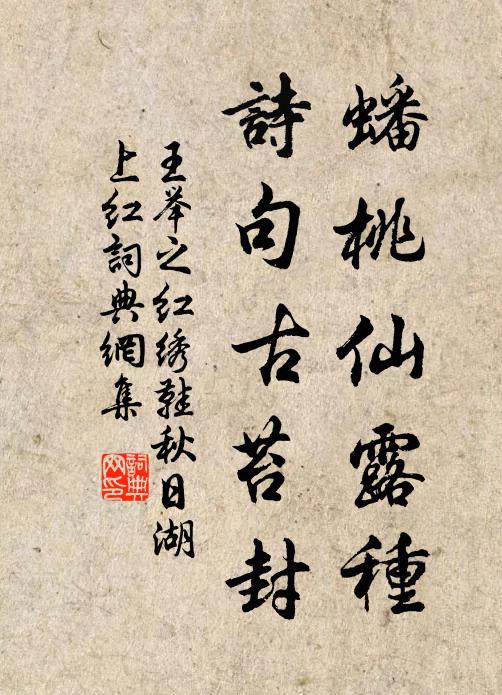 蟠桃仙露種
詩句古苔封
王举之红绣鞋秋日湖
上红詞典網集
詞典
网印